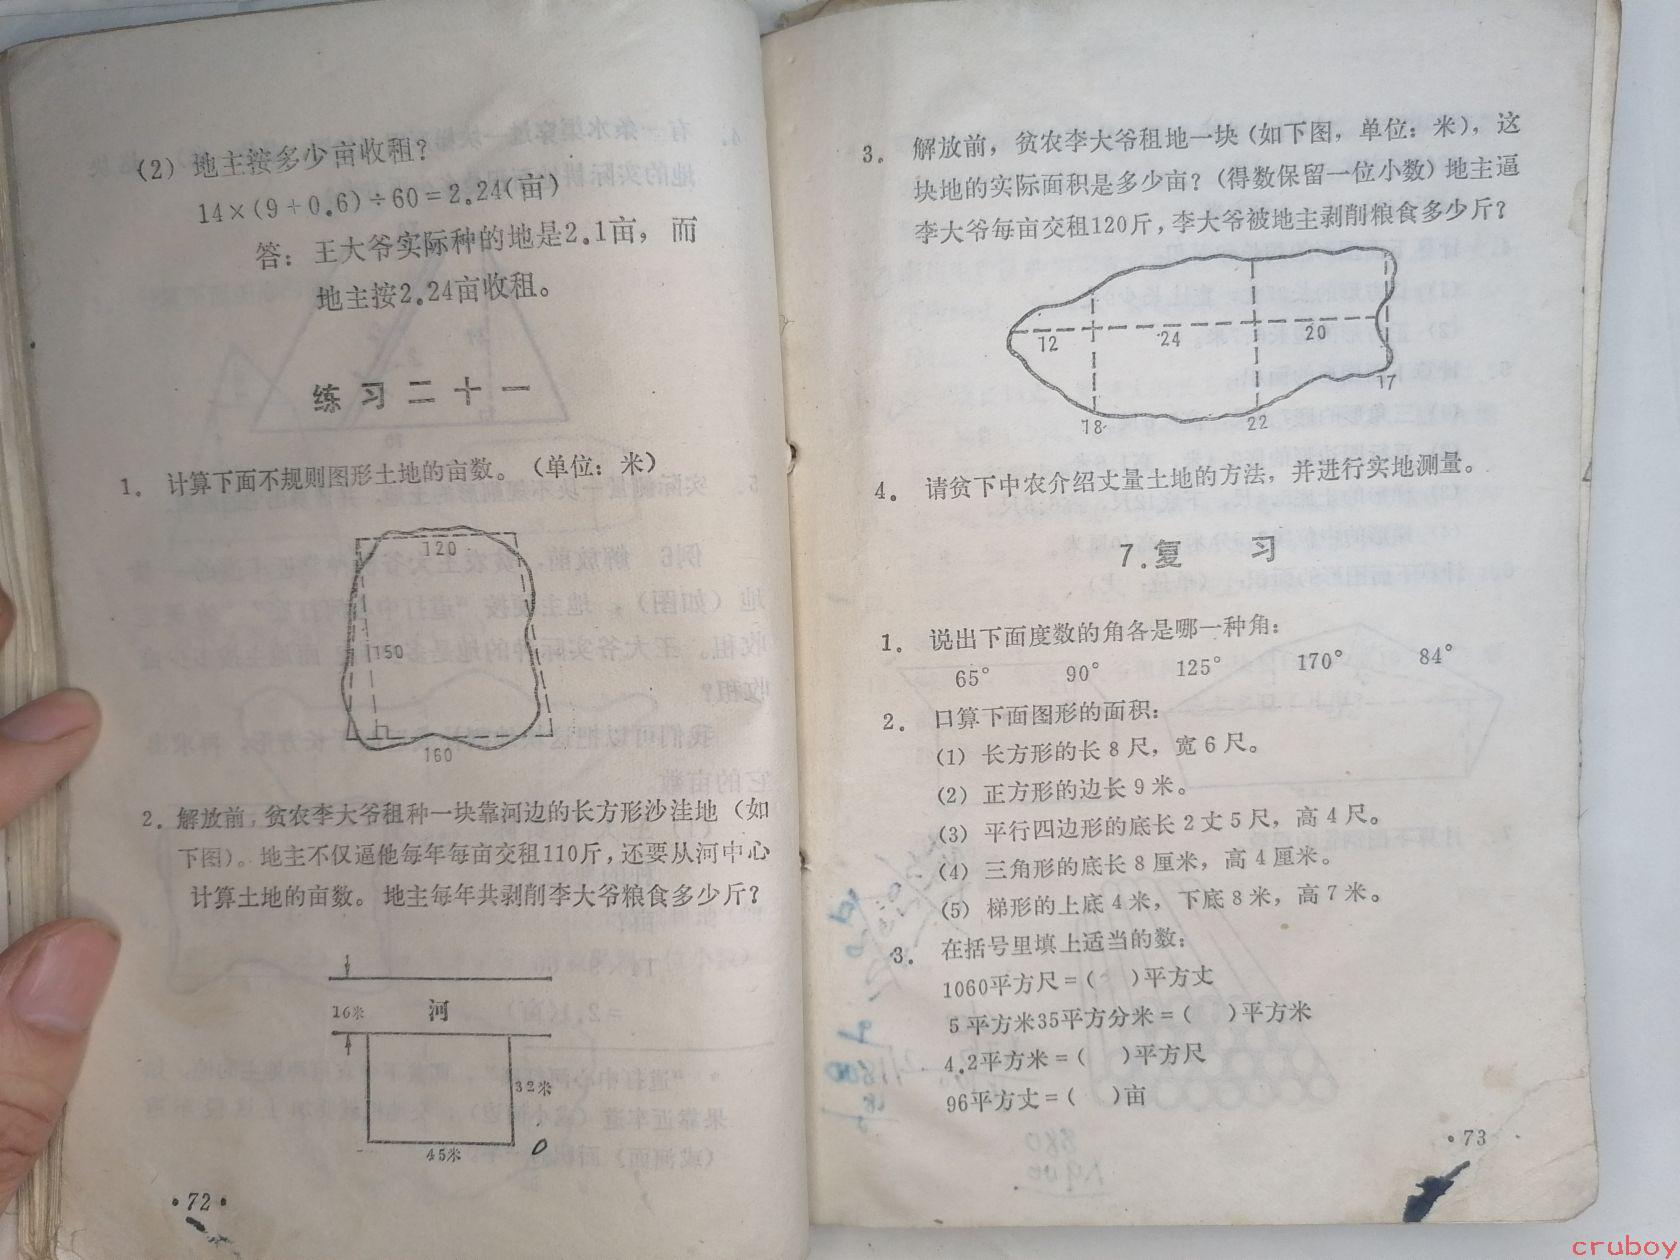 (2) 地主按多少亩收租?
14×(9+0.6)÷60=2.24(亩)
答: 王大爷实际种的地是2.1亩, 而
地主按2.24亩收租。
练习二十一
1. 计算下面不规则图形土地的亩数。(单位: 米)
120
150
160
2. 解放前,贫农李大爷租种一块靠河边的长方形沙洼地 (如
下图)。地主不仅逼他每年每亩交租110斤,还要从河中心
计算土地的亩数。地主每年共剥削李大爷粮食多少斤?
16米
河
32米
45米
·72·
3. 解放前, 贫农李大爷租地一块(如下图, 单位: 米), 这
块地的实际面积是多少亩? (得数保留一位小数) 地主逼
李大爷每亩交租120斤, 李大爷被地主剥削粮食多少斤?
12
24
20
17
18
22
4. 请贫下中农介绍丈量土地的方法, 并进行实地测量。
7.复 习
1. 说出下面度数的角各是哪一种角:
65° 90° 125° 170° 84°
2. 口算下面图形的面积:
(1) 长方形的长8尺, 宽6尺。
(2) 正方形的边长9米。
(3) 平行四边形的底长2丈5尺, 高4尺。
(4) 三角形的底长8厘米, 高4厘米。
(5) 梯形的上底4米, 下底8米, 高7米。
3. 在括号里填上适当的数:
1060平方尺=( )平方丈
5平方米35平方分米=( )平方米
4.2平方米=( )平方尺
96平方丈=( )亩
·73·
cruboy